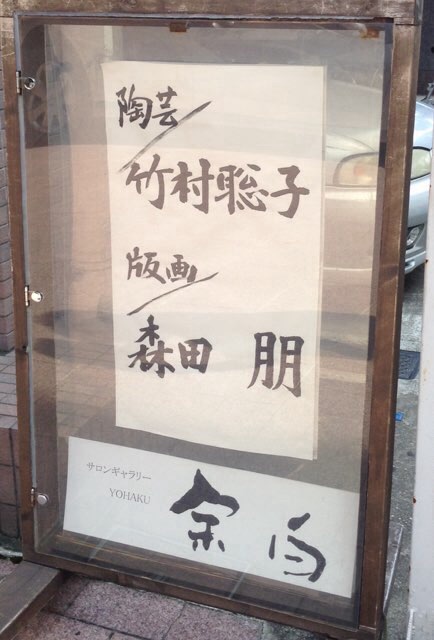 陶芸
竹村聡子
版画
森田 朋
サロンギャラリー
YOHAKU
余白